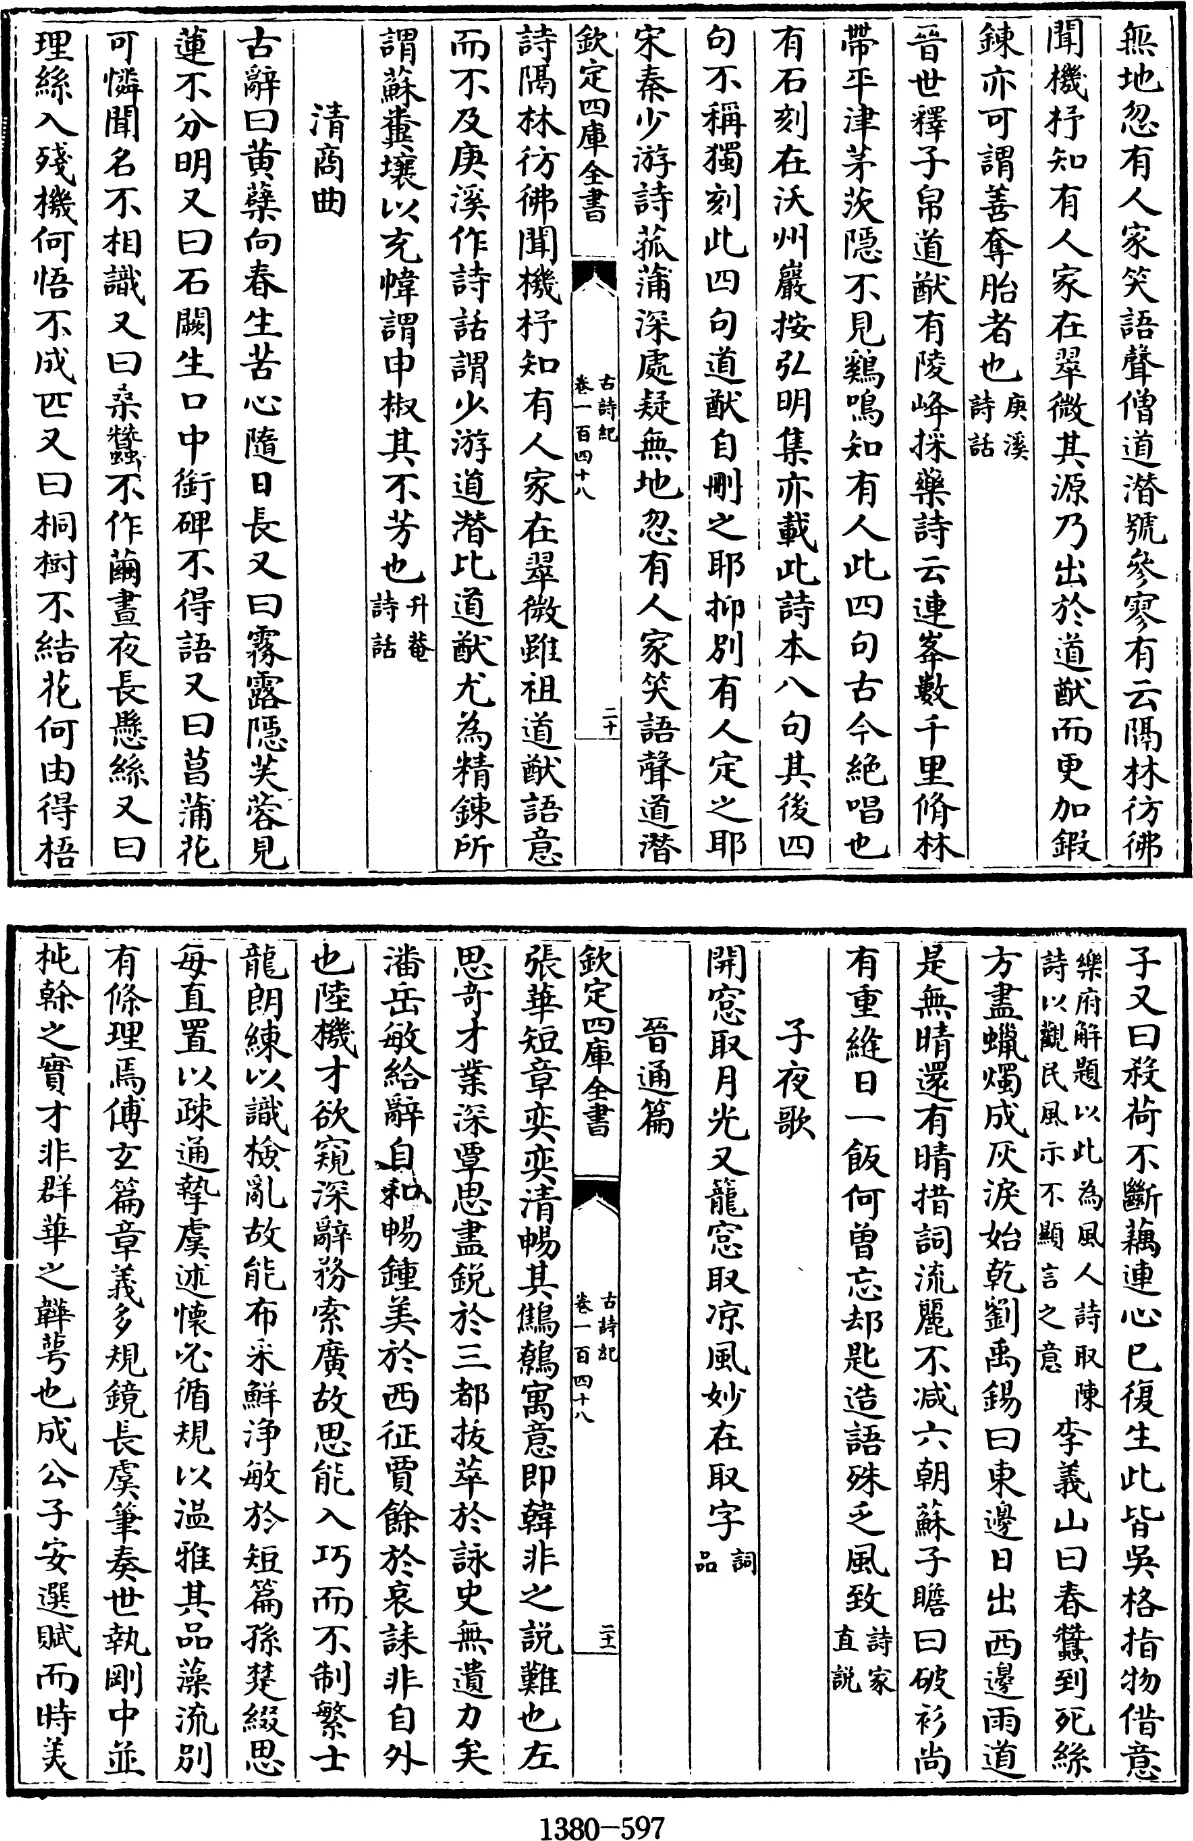 無地忽有人家笑語聲僧道潛號參寥有云隔林彷彿
聞機杼知有人家在翠微其源乃出於道猷而更加鍜
鍊亦可謂善奪胎者也庚溪詩話
晉世釋子帛道猷有陵峰採藥詩云連峯數千里脩林
帶平津茅茨隱不見鷄鳴知有人此四句古今絶唱也
有石刻在沃州巖按弘明集亦載此詩本八句其後四
句不稱獨刻此四句道猷自刪之耶抑别有人定之耶
宋秦少游詩菰蒲深處疑無地忽有人家笑語聲道潛
欽定四庫全書 古詩紀 卷一百四十八 二十
詩隔林彷彿聞機杼知有人家在翠微雖祖道猷語意
而不及庚溪作詩話謂少游道潛比道猷尤為精鍊所
謂蘇糞壤以充幃謂申椒其不芳也升菴詩話
清商曲
古辭曰黄蘗向春生苦心隨日長又曰霧露隱芙蓉見
蓮不分明又曰石闕生口中銜碑不得語又曰菖蒲花
可憐聞名不相識又曰桒蠶不作繭晝夜長懸絲又曰
理絲入殘機何悟不成匹又曰桐樹不結花何由得梧
子又曰殺荷不斷藕蓮心已復生此皆吳格指物借意
樂府解題以此為風人詩取陳詩以觀民風示不顯言之意 李義山曰春蠶到死絲
方盡蠟燭成灰淚始乾劉禹錫曰東邊日出西邊雨道
是無晴還有晴措詞流麗不减六朝蘇子瞻曰破衫尚
有重縫日一飯何曽忘却匙造語殊乏風致詩家直説
子夜歌
開窓取月光又籠窓取凉風妙在取字詞品
晉通篇
欽定四庫全書 古詩紀 卷一百四十八 二十一
張華短章奕奕清暢其鷦鷯寓意即韓非之説難也左
思奇才業深覃思盡鋭於三都拔萃於詠史無遺力矣
潘岳敏給辭自和暢鍾美於西征賈餘於哀誄非自外
也陸機才欲窺深辭務索廣故思能入巧而不制繁士
龍朗練以識檢亂故能布采鮮淨敏於短篇孫楚綴思
每直置以疎通摯虞述懷必循規以温雅其品藻流别
有條理焉傅玄篇章義多規鏡長虞筆奏世執剛中並
杶幹之實才非群華之韡萼也成公子安選賦而時美
1380-597